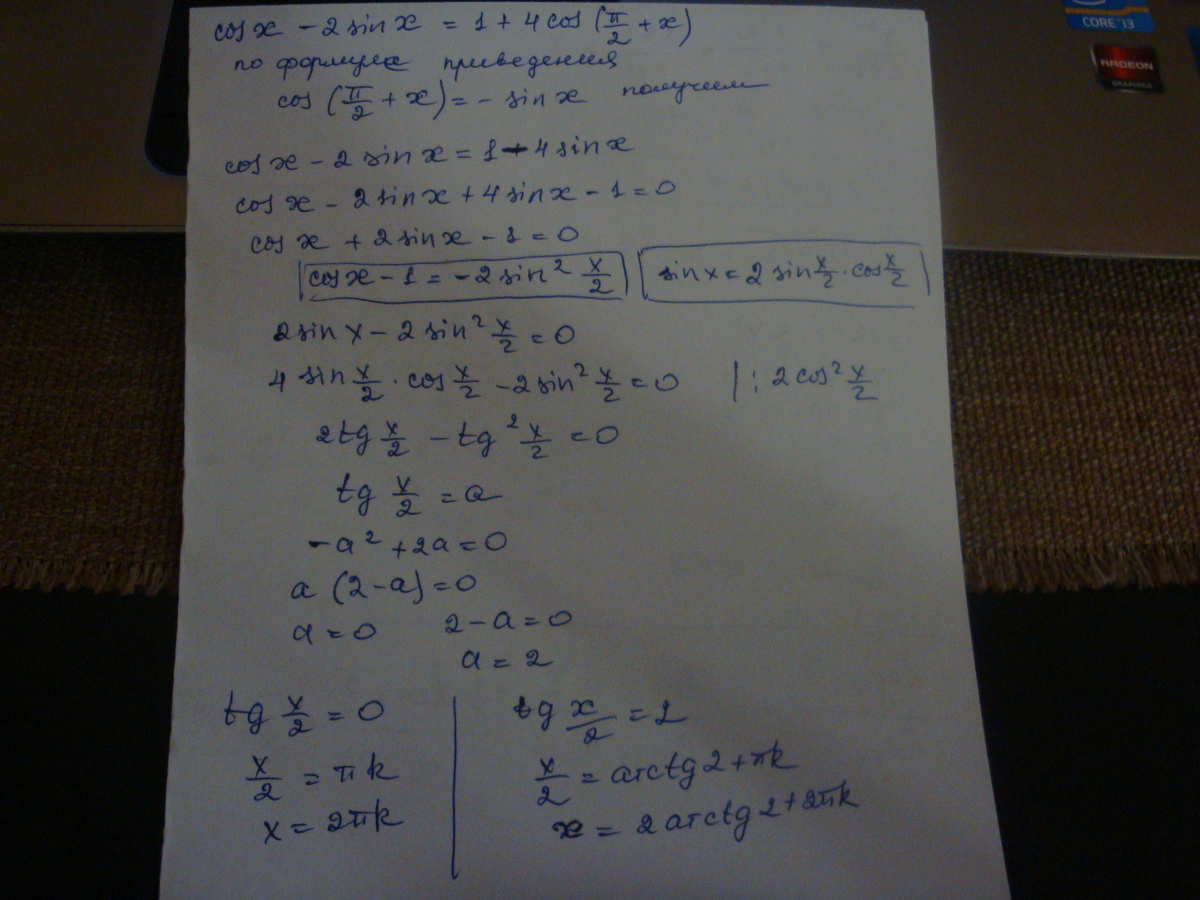 cos x - 2 sin x = 1 + 4 cos (π/2 + x)
по формуле приведения
cos (π/2 + x) = - sin x получим
cos x - 2 sin x = 1 - 4 sin x
cos x - 2 sin x + 4 sin x - 1 = 0
cos x + 2 sin x - 1 = 0
cos x - 1 = -2 sin² x/2
sin x = 2 sin x/2 · cos x/2
2 sin x - 2 sin² x/2 = 0
4 sin x/2 · cos x/2 - 2 sin² x/2 = 0 | : 2 cos² x/2
2 tg x/2 - tg² x/2 = 0
tg x/2 = a
-a² + 2a = 0
a (2 - a) = 0
a = 0 2 - a = 0
a = 2
tg x/2 = 0
x/2 = πk
x = 2πk
tg x/2 = 2
x/2 = arctg 2 + πk
x = 2 arctg 2 + 2πk
CORE i3
RADEON
GRAPHICS